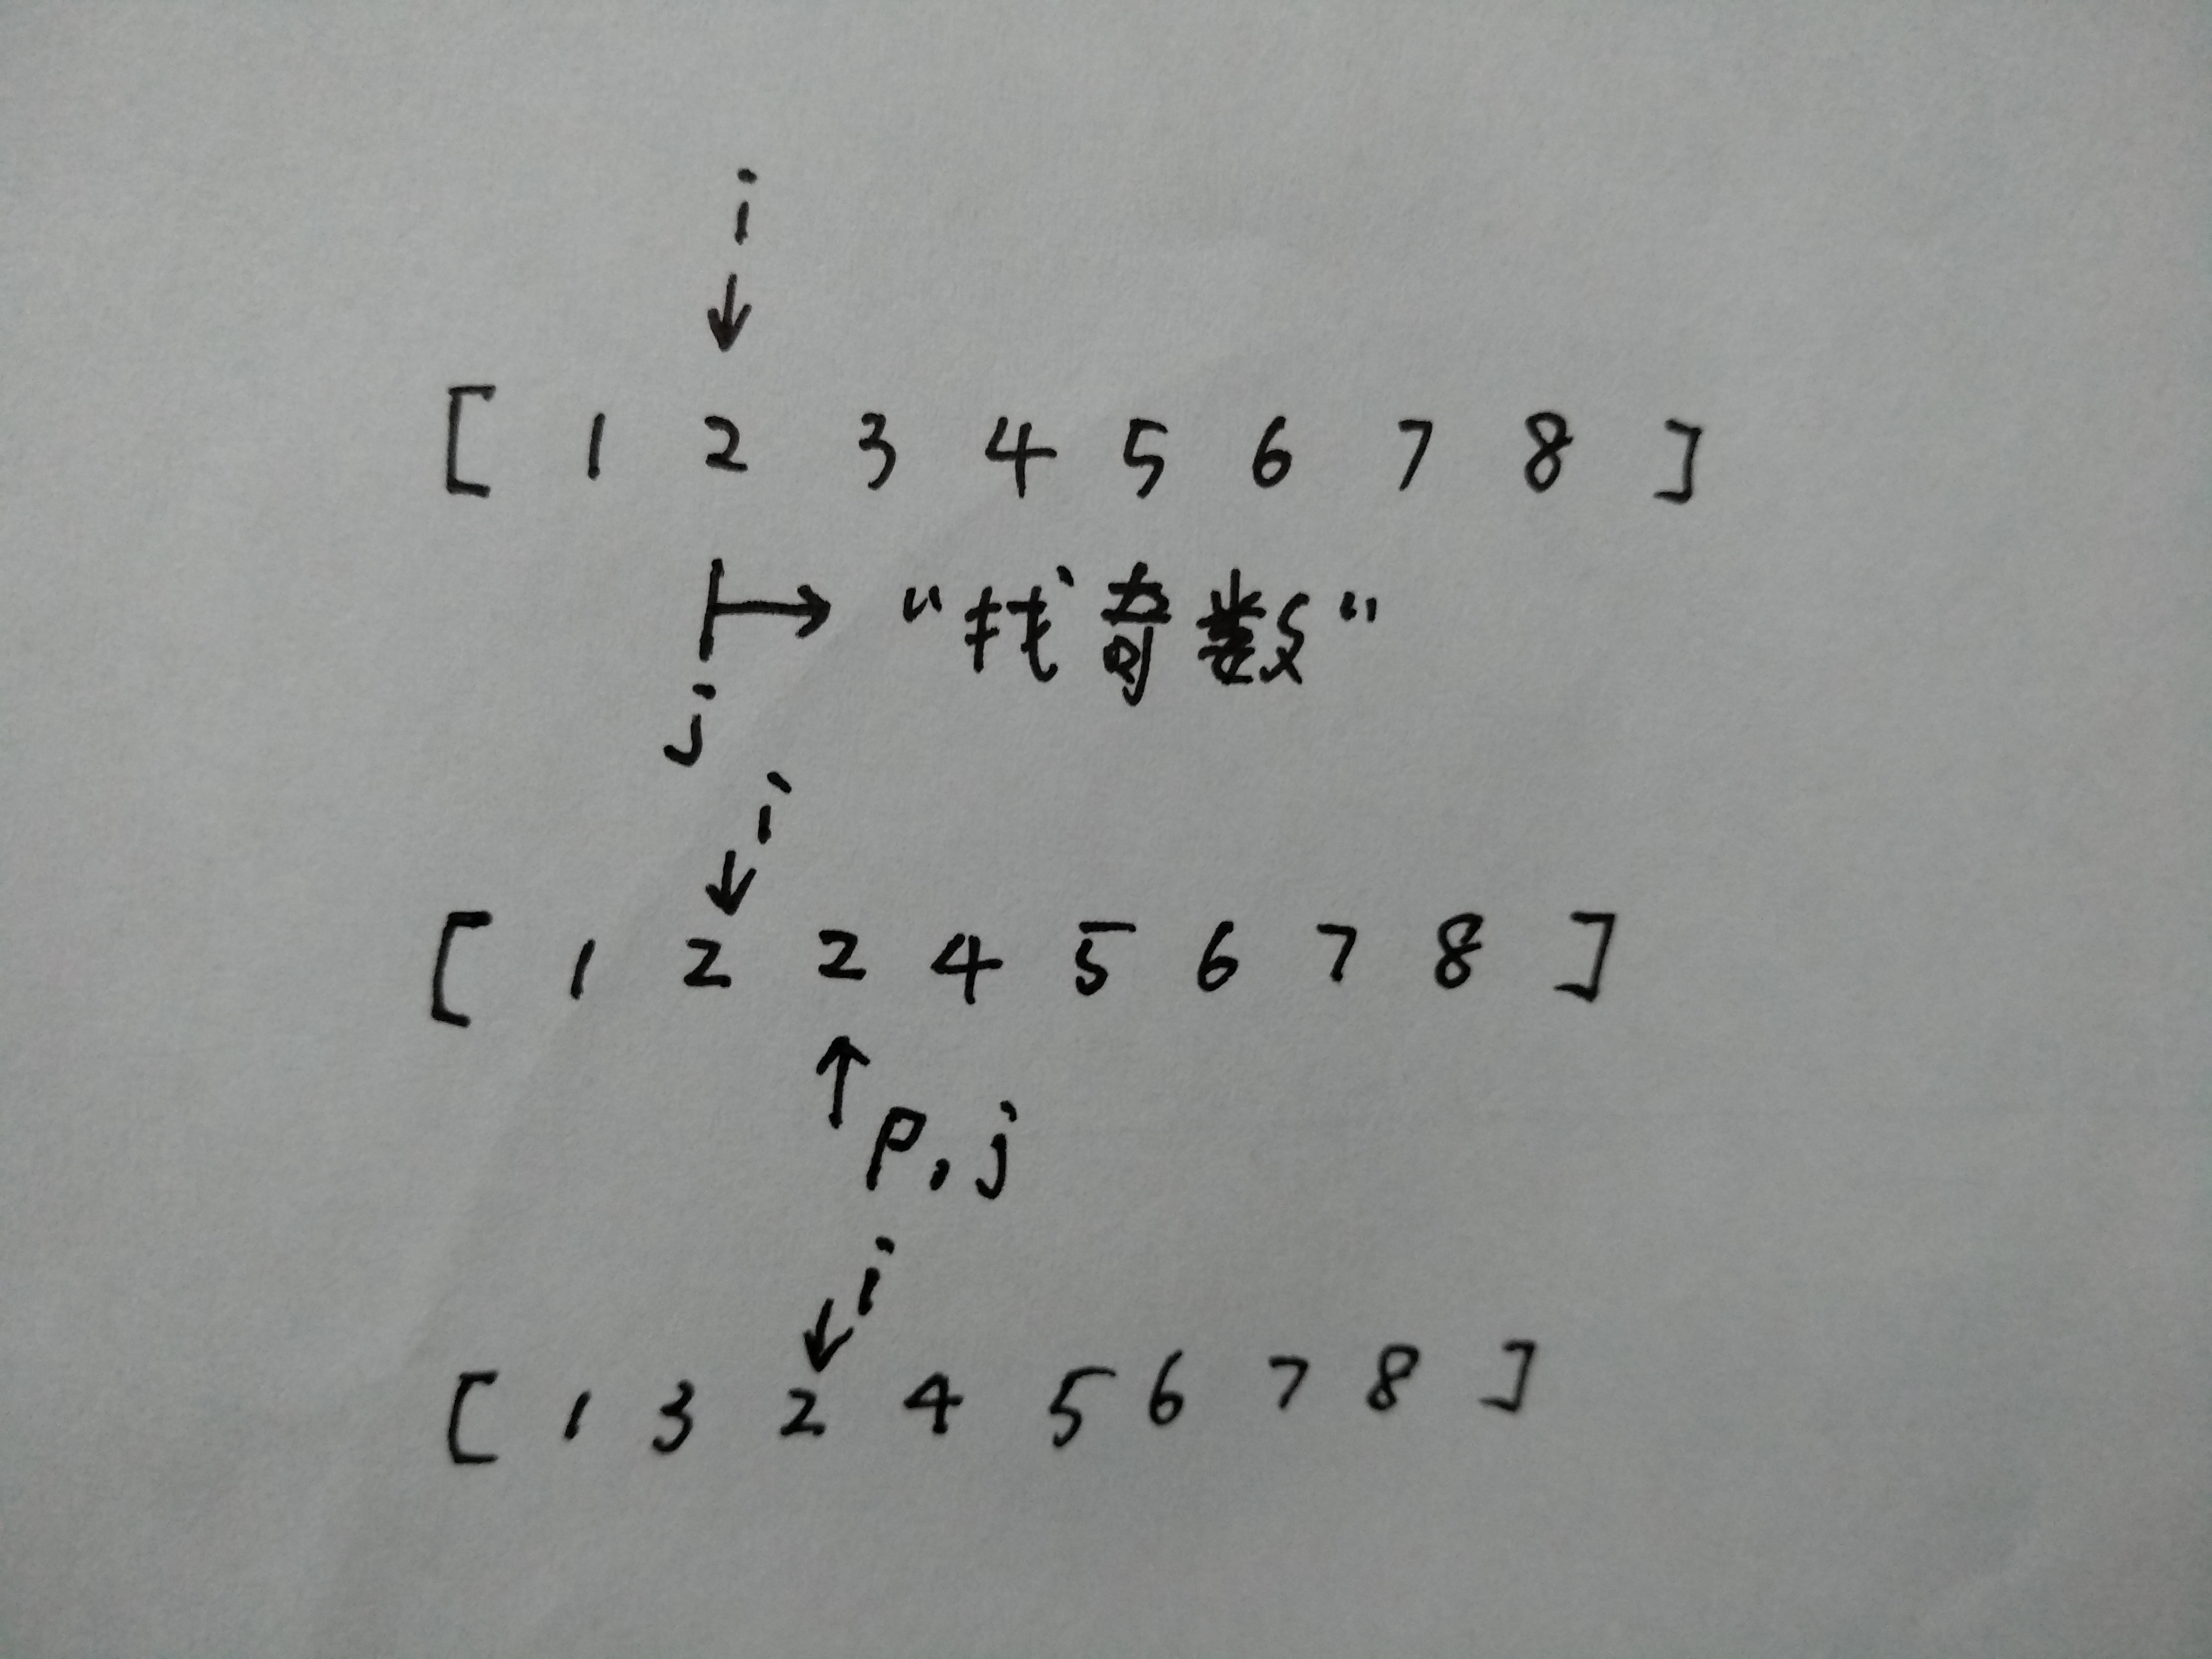 i
↓
[ 1 2 3 4 5 6 7 8 ]
↦ “找奇数“
j
i
↓
[ 1 2 2 4 5 6 7 8 ]
↑
p, j
i
↓
[ 1 3 2 4 5 6 7 8 ]